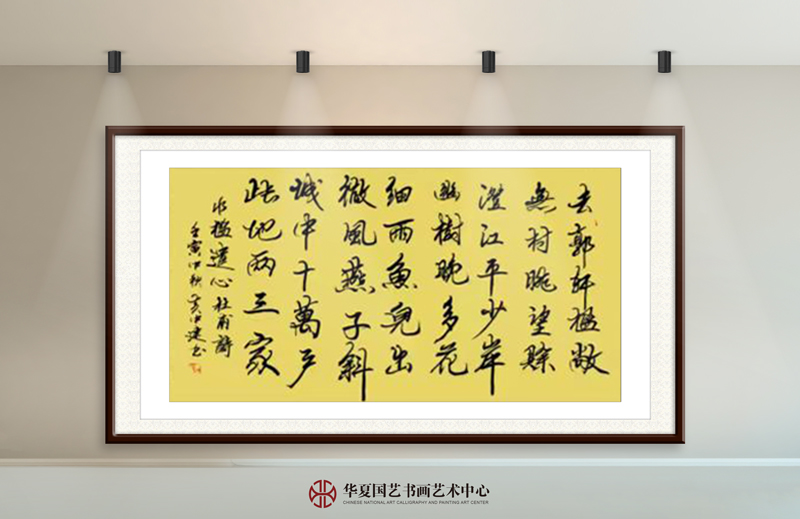 去郭軒楹敞
無村眺望賒
澄江平少岸
幽樹晚多花
細雨魚兒出
微風燕子斜
城中十萬戶
此地兩三家
水檻遣心杜甫詩
壬寅仲秋
华夏国艺书画艺术中心
CHINESE NATIONAL ART CALLIGRAPHY AND PAINTING ART CENTER